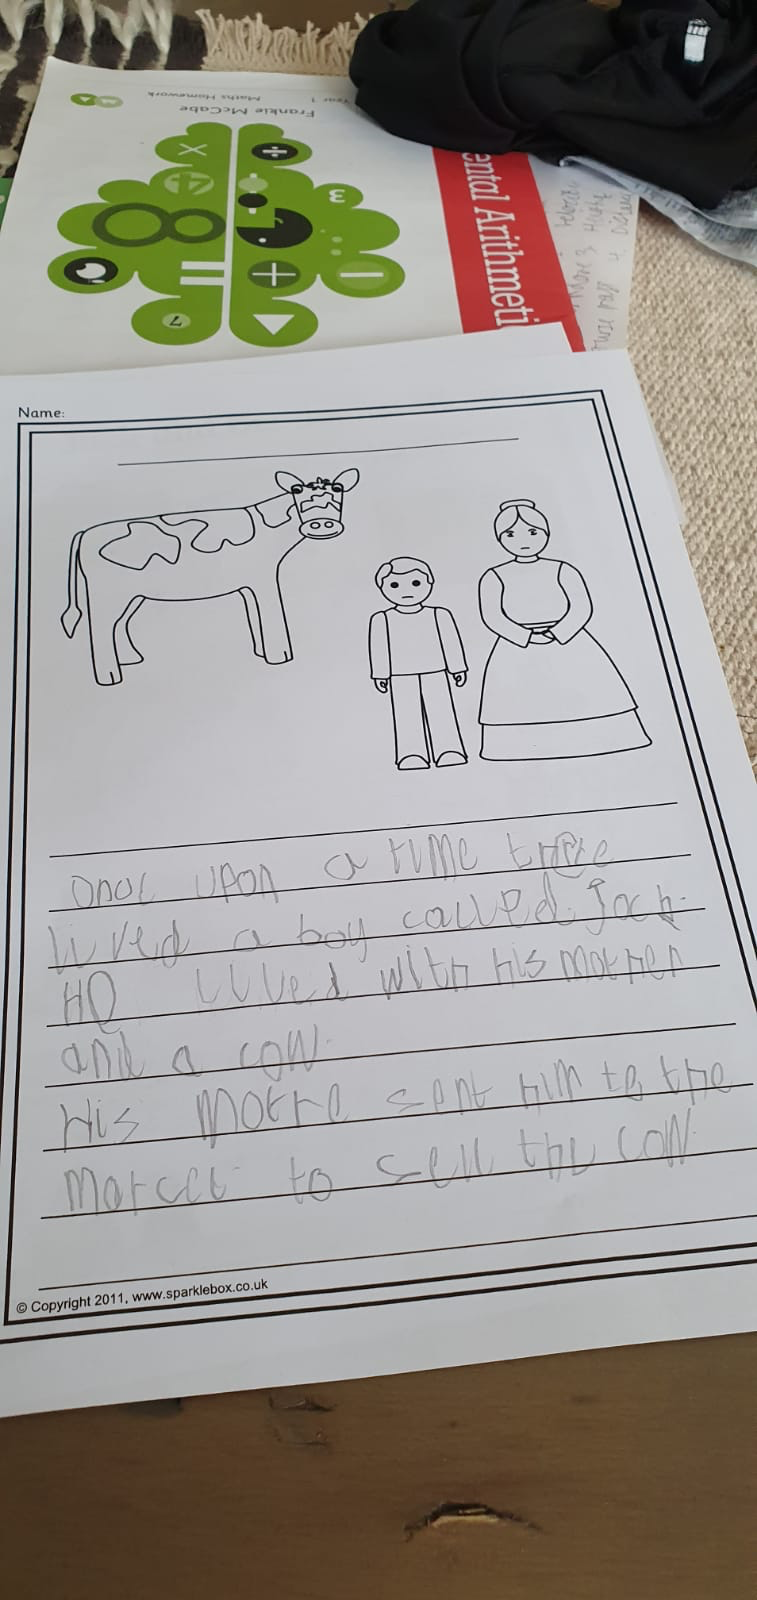 Year 1
Maths Homework
Frankie McCabe
ental Arithmeti
Name:
onoc upon a time there
lived a boy called Jack.
HE lived with his mother
and a cow.
His mothe sent him to the
marcet to sell the cow.
© Copyright 2011, www.sparklebox.co.uk